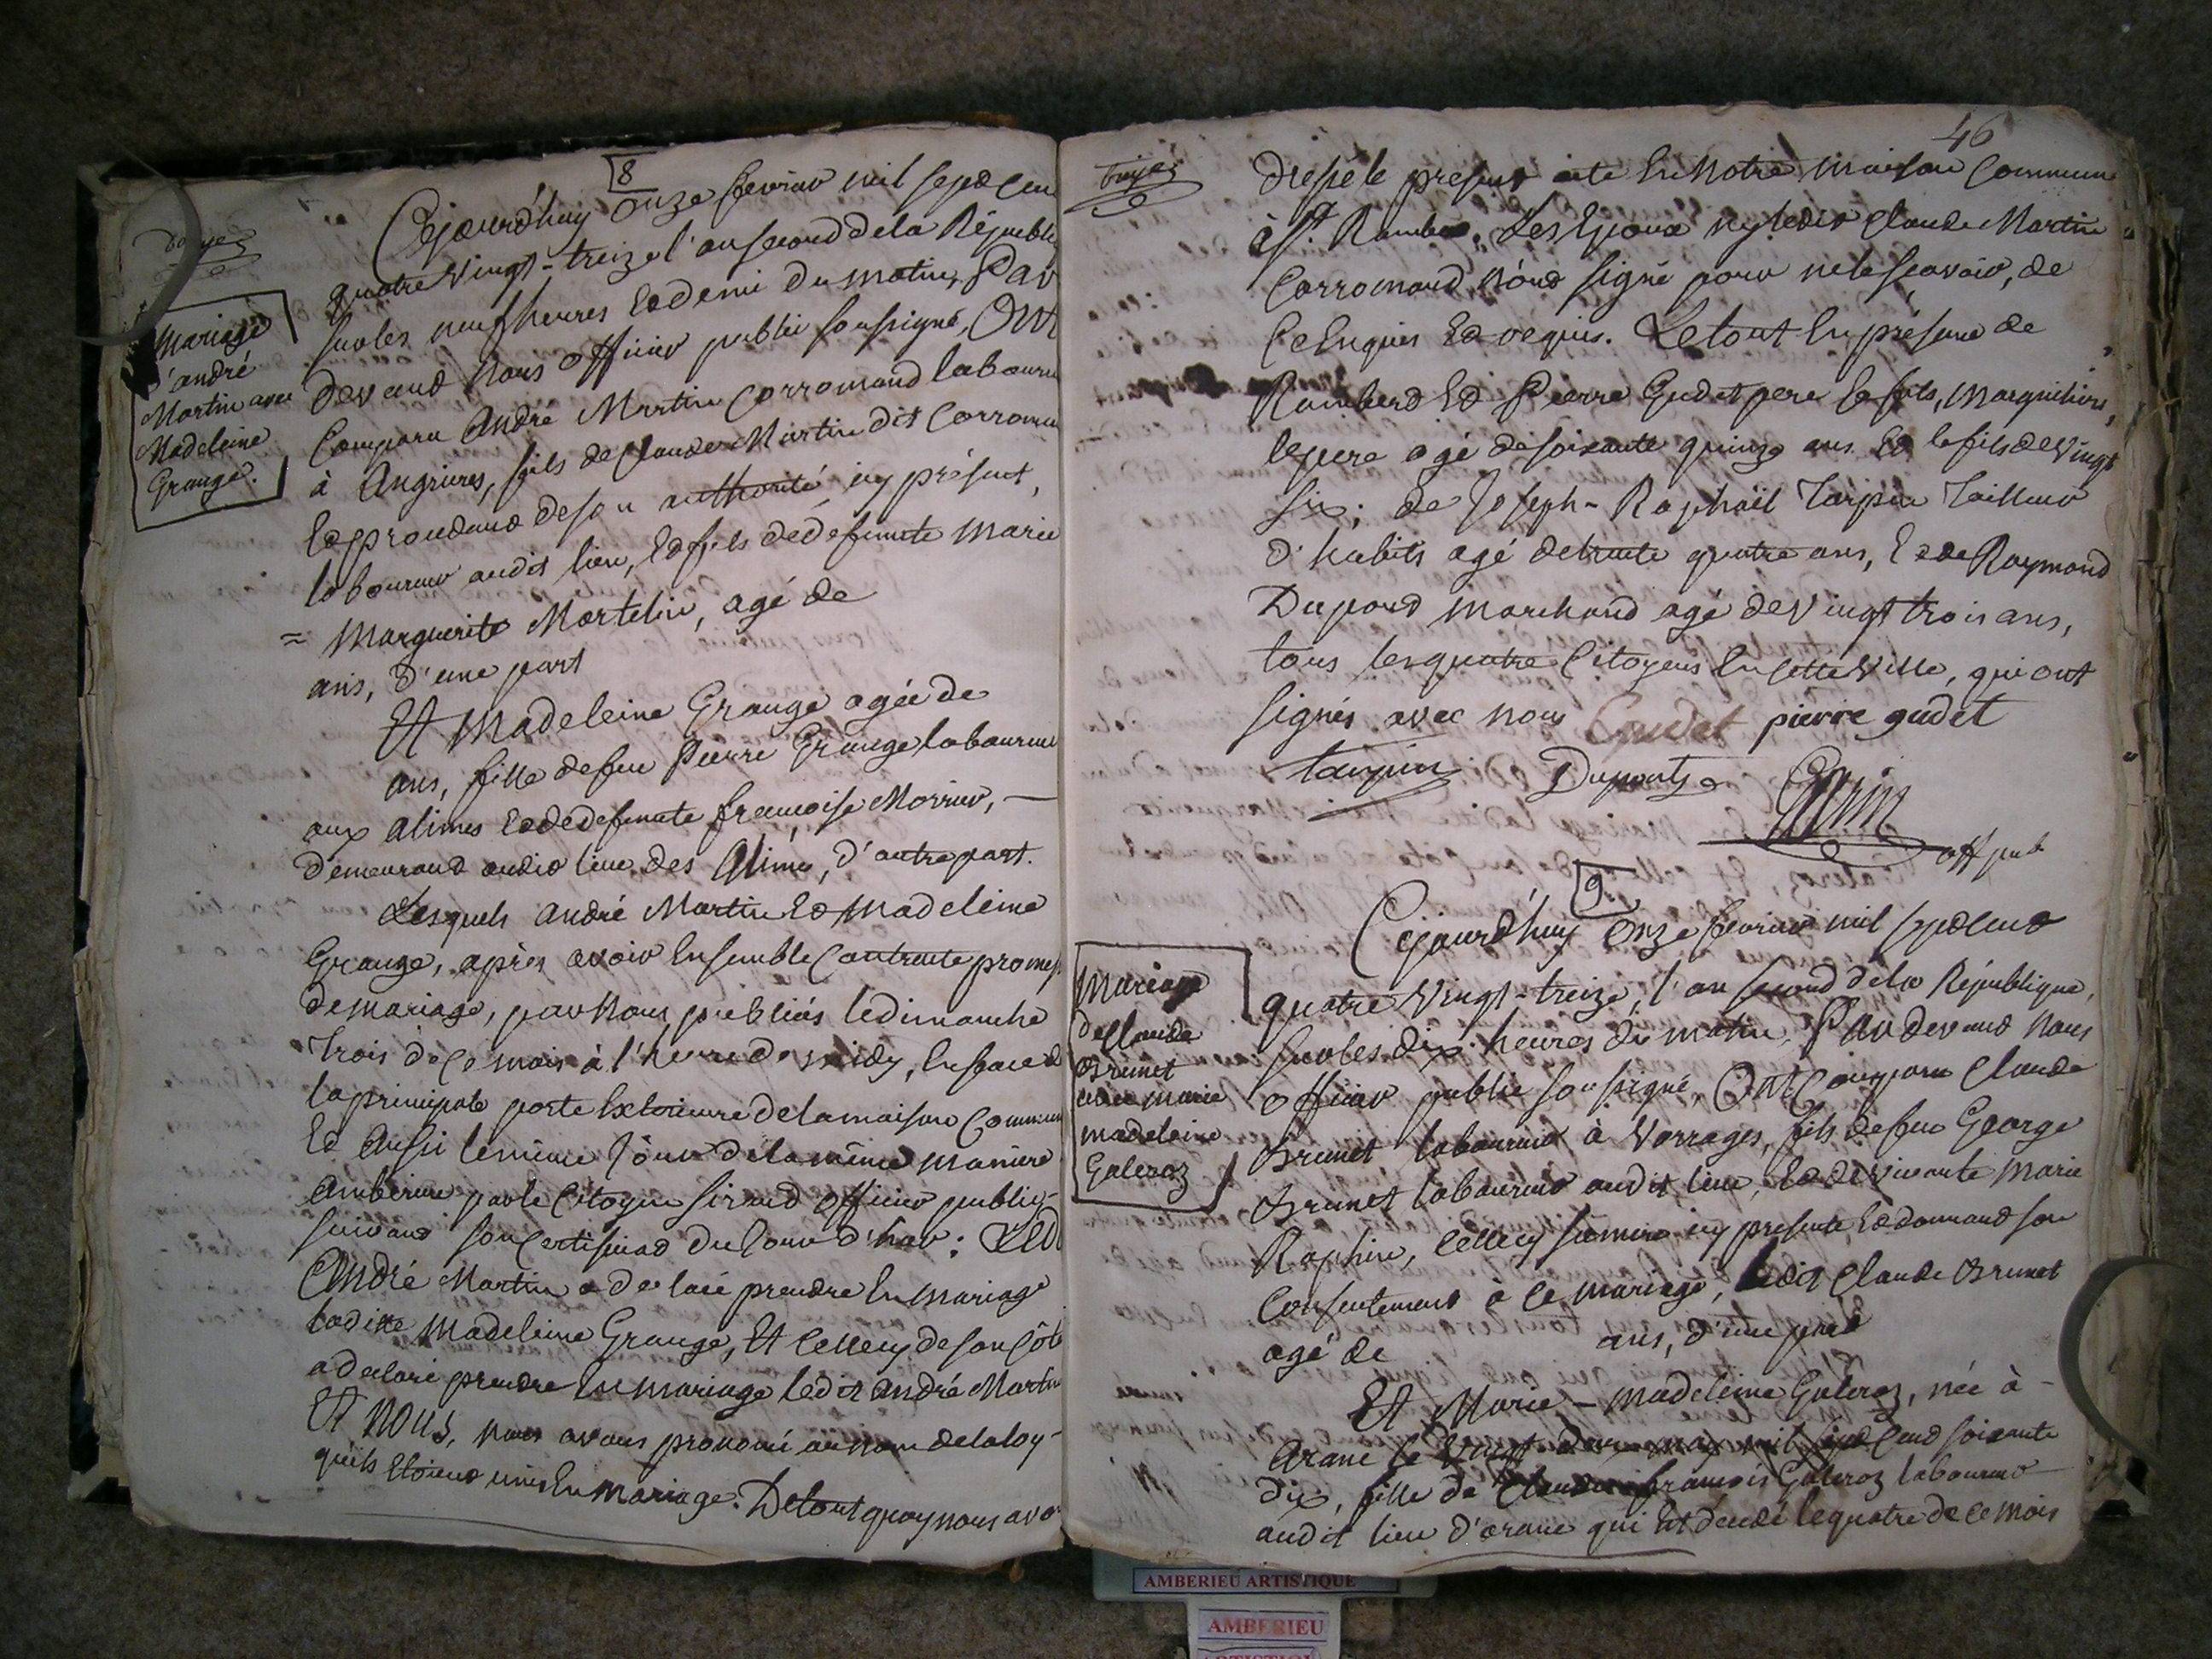 8
Cejourd'huy onze fevrier mil sept cen
quatre vingt-treize l'an second de la Républi
sur les neuf heures et demi du matin, Par
devant nous officier public soussigné, Ont
Comparu André Martin Corromand laboureu
à Angrieres, fils de Claude Martin dit Corroma
laboureur audit lieu, et fils de défunte Marie
= Marguerite Martelin, agé de
ans, d'une part
Et Madeleine Grange agée de
ans, fille de feu Pierre Grange laboureur
aux alimes et de défunte françoise Morrier, —
demeurant audit lieu des Alimes, d'autre part.
Lesquels andré Martin et Madeleine
Grange, après avoir Ensemble Contracté promes
de mariage, par Nous publiés le dimanche
Trois de Ce mois à l'heure de midy, En face d
la principale porte Exterieure de la maison Commun
Et Aussi le même Jour de la même maniere
Amberieu par le Citoyen Sirand officier public
suivant son Certificat du Jour d'hier : Led
André Martin a declaré prendre En mariage
laditte Madeleine Grange, Et Cellecy de son Côté
a declaré prendre En mariage ledit André Martin
Et NOUS, nous avons prononcé au nom de la loy
qu'ils Etoient unis En Mariage. De tout quoy nous avo
Mariage
d'andré
Martin avec
Madeleine
Grange.
46
dressé le present acte En Notre maison Commune
à St. Rambert, Les Epoux ny ledit Claude Martin
Corromand n'ont signé pour ne le sçavoir, de
Ce Enquis Et requis. Le tout En présence de
Rambert Et Pierre Gudet pere Et fils, Marguilliers,
le pere agé de soixante quinze ans Et le fils de vingt
six; de Joseph-Raphaël Tarpin Tailleur
d'habits agé de trente quatre ans, Et de Raymond
Dupont Marchand agé de Vingt trois ans,
tous les quatre Citoyens En Cette Ville, qui ont
signés avec nous Gudet pierre gudet
tarpin Dupont
off pub
9
Cejourd'huy onze fevrier mil sept Cent
quatre Vingt-treize, l'an second de la République,
sur les dix heures du matin, Par devant Nous
officier public soussigné, Ont Comparu Claude
Brunet laboureur à Vorrages, fils de feu George
Brunet laboureur audit lieu, Et de vivante Marie
Raphin, Cellecy sa mere icy presente Et donnant son
Consentement à Ce Mariage, ledit Claude Brunet
agé de ans, d'une part
Et Marie-Madeleine Galeroz, née à -
Arane le Vingt deux may mil sept Cent soixante
dix, fille de Claude françois Galeroz laboureur
audit lieu d'arane qui Est décédé le quatre de Ce mois
Mariage
de Claude
Brunet
avec Marie
Madeleine
Galeroz
AMBERIEU ARTISTIQUE
AMBERIEU
ARTISTIQUE